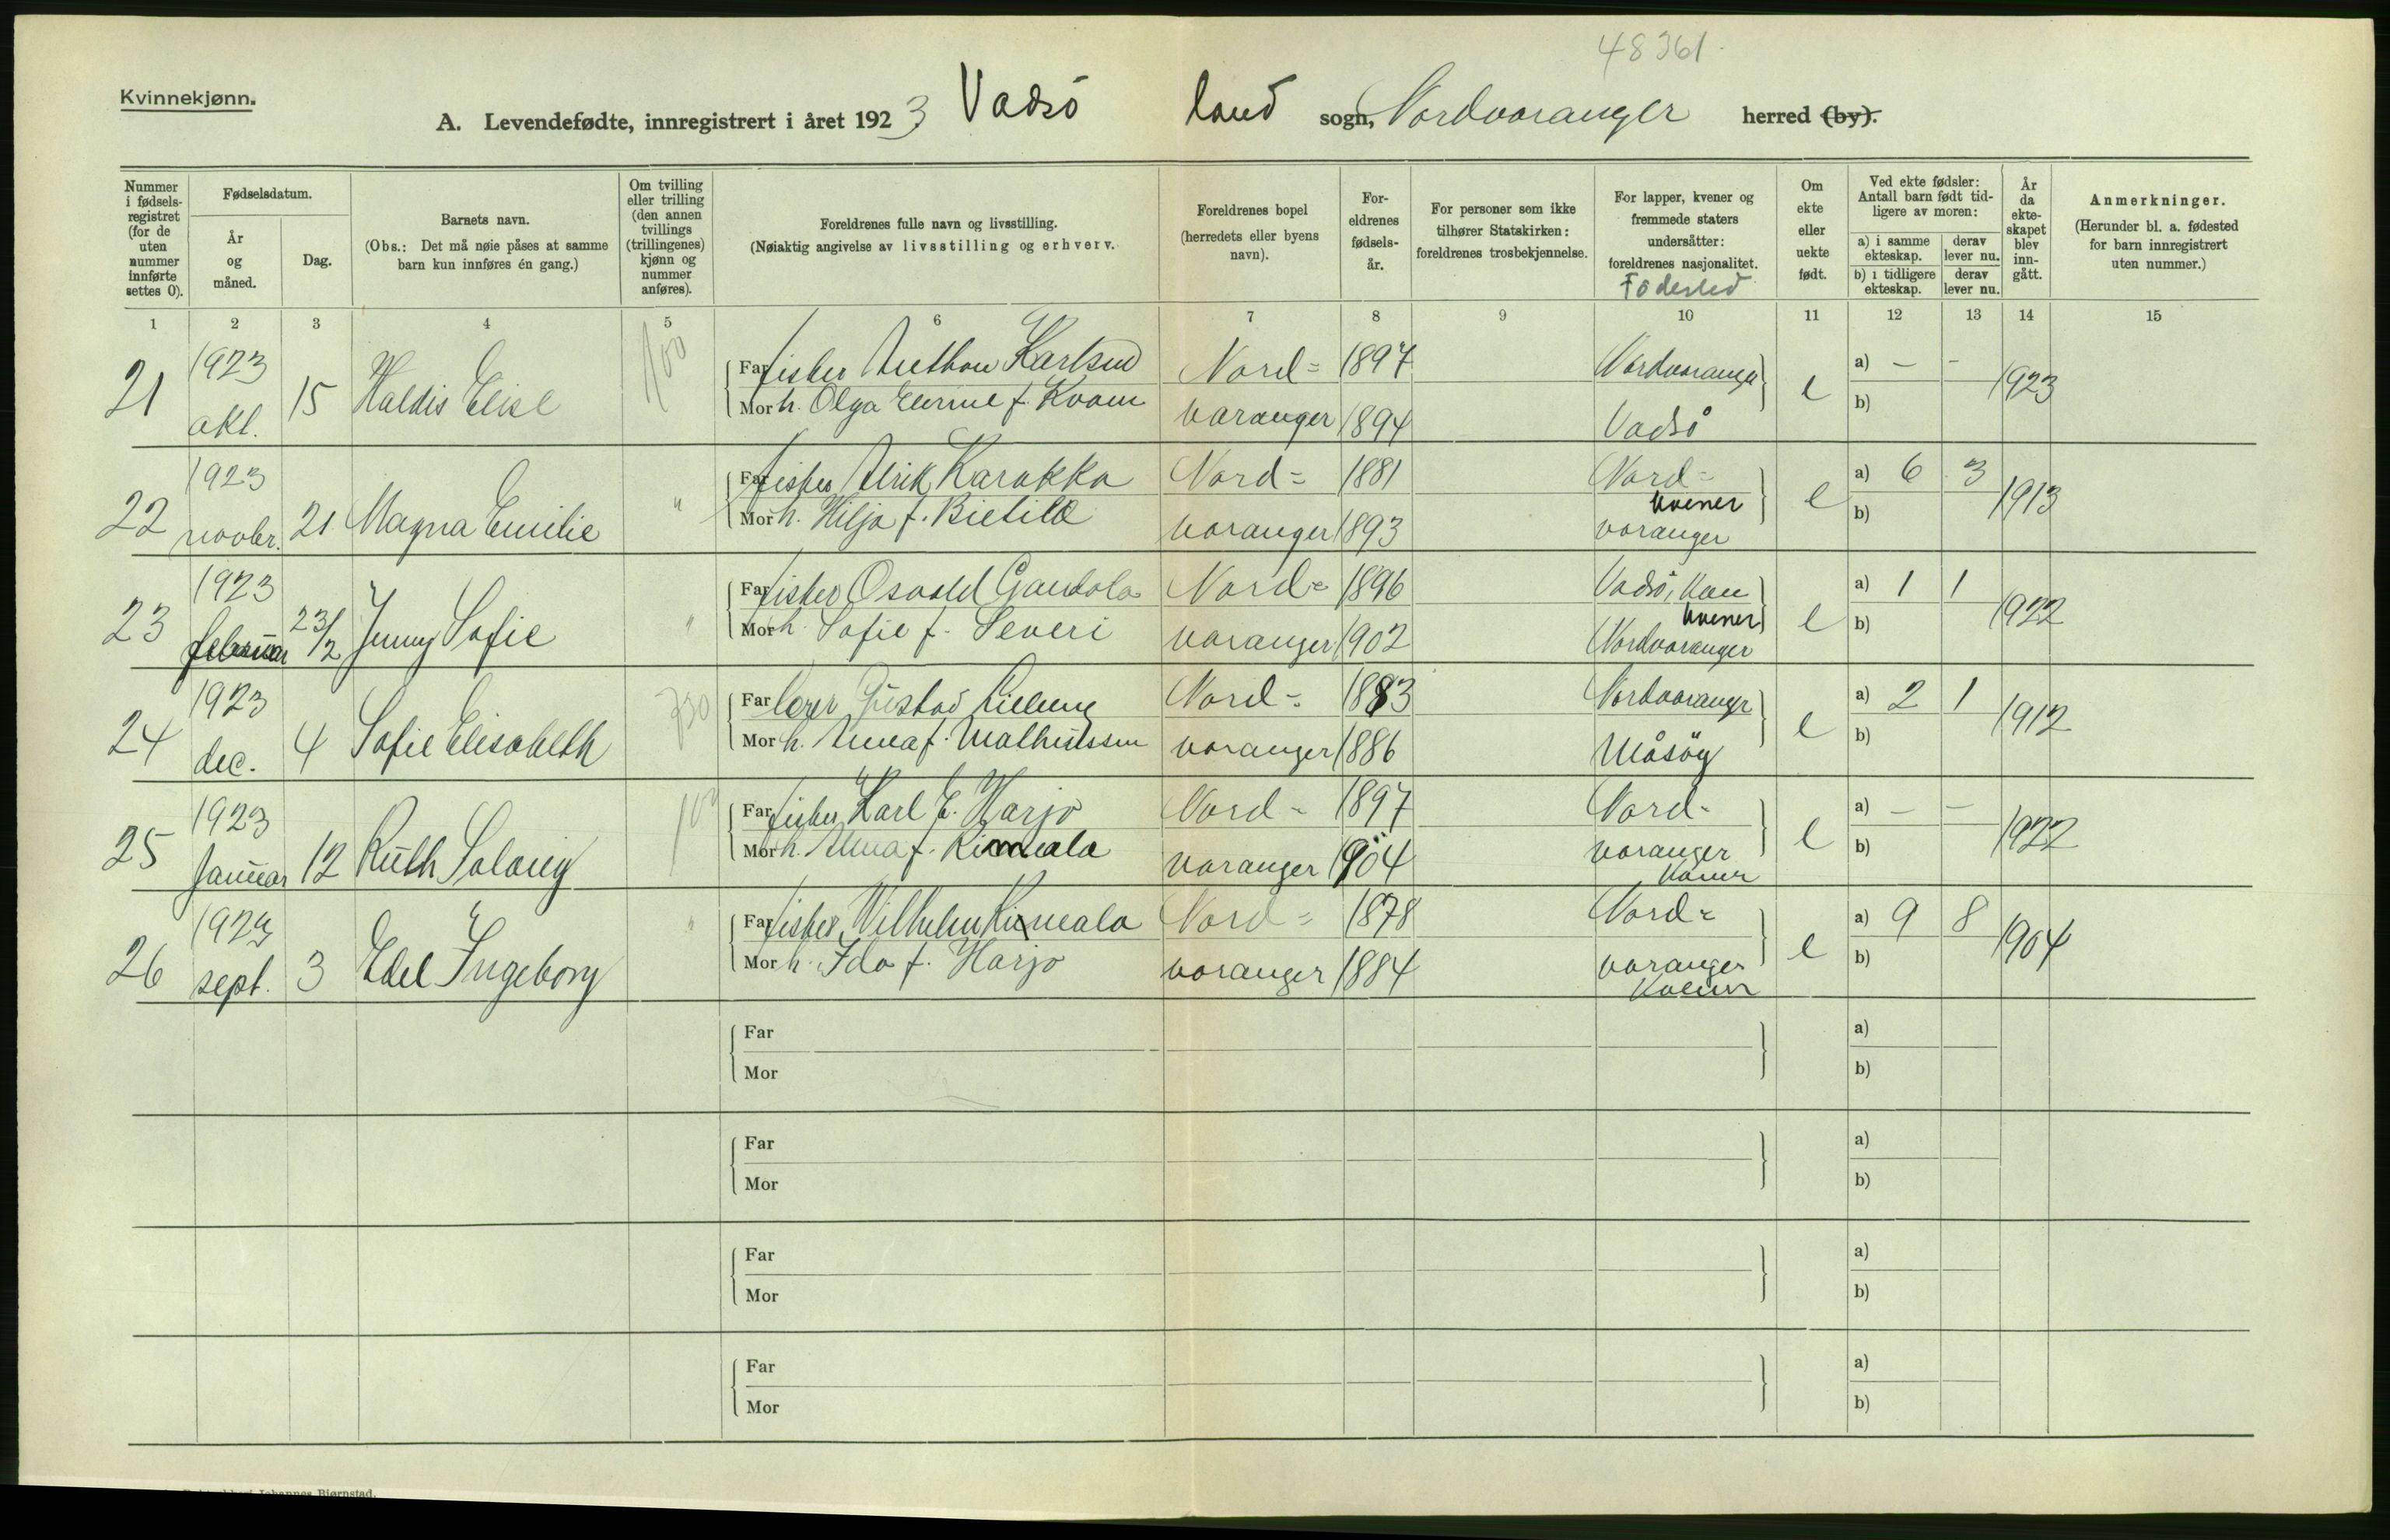 48361.
Kvinnekjønn.
A. Levendefødte, innregistrert i året 1923 Vadsö land sogn, Nordvaranger herred (by).
Nummer i fødsels-registret (for de uten nummer innførte settes 0).
Fødselsdatum.
År og måned.
Dag.
Barnets navn.
(Obs.: Det må nøie påses at samme barn kun innføres én gang.)
Om tvilling eller trilling (den annen tvillings (trillingenes) kjønn og nummer anføres).
Foreldrenes fulle navn og livsstilling.
(Nøiaktig angivelse av livsstilling og erhverv.
Foreldrenes bopel (herredets eller byens navn).
For-eldrenes fødsels-år.
For personer som ikke tilhører Statskirken: foreldrenes trosbekjennelse.
For lapper, kvener og fremmede staters undersåtter: foreldrenes nasjonalitet.
Födested
Om ekte eller uekte født.
Ved ekte fødsler: Antall barn født tid-ligere av moren:
a) i samme ekteskap.
derav lever nu.
b) i tidligere ekteskap.
derav lever nu.
År da ekte-skapet blev inn-gått.
Anmerkninger.
(Herunder bl. a. fødested for barn innregistrert uten nummer.)
1 2 3 4 5 6 7 8 9 10 11 12 13 14 15
21 1923 okt. 15 Haldis Elise 100
Far fisker Anthon Karlsen Nord= 1897 Nordvaranger e a) – – 1923
Mor h. Olga f. Kvam varanger 1894 Vadsö b)
22 1923 novbr. 21 Magna Emilie "
Far fisker Ulrik Karakka Nord= 1881 Nord- e a) 6 3 1913
Mor h. Hilja f. Bietilæ varanger 1893 kvener varanger b)
23 1923 februar 23/2 Jenny Sofie "
Far fisker Osvald Gandola Nord= 1896 Vadsö, e a) 1 1 1922
Mor h. Sofie f. Severi varanger 1902 kvener Nordvaranger b)
24 1923 dec. 4 Sofie Elisabeth
Far Gustav Nord- 1883 Nordvaranger e a) 2 1 1912
Mor h. Anna f. Mathisssen varanger 1886 Måsöy b)
25 1923 Januar 12 Ruth Solveig 100
Far fisker Karl E. Harjo Nord- 1897 Nord- e a) – – 1922
Mor h. Anna f. Kinnala varanger 1904 varanger b)
26 1923 sept. 3 Edel Ingeborg "
Far fisker Wilhelm Nord= 1878 Nord= e a) 9 8 1904
Mor h. Ida f. Harjo varanger 1884 varanger kvener b)
Far a)
Mor b)
Far a)
Mor b)
Far a)
Mor b)
Far a)
Mor b)
Johannes Bjørnstad.